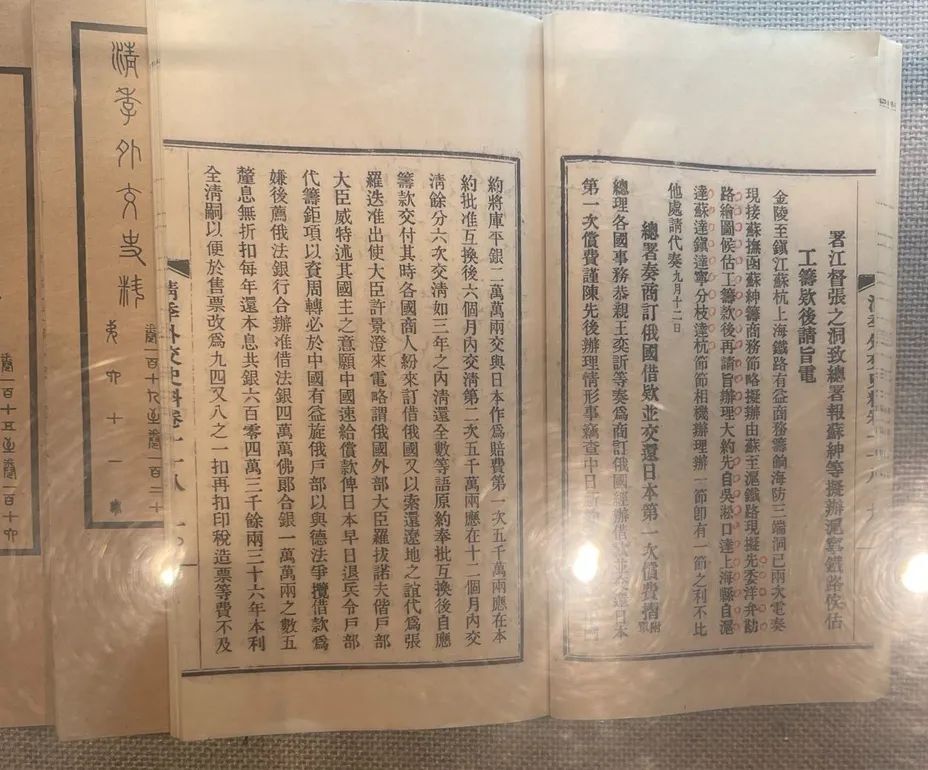 署江督張之洞致總署報蘇紳等擬辦滬寧鐵路俟估
工籌款後請旨電
金陵至鎮江蘇杭上海鐵路有益商務籌餉海防三端洞已兩次電奏
現接蘇撫函蘇紳籌商務節略擬辦由蘇至滬鐵路現擬先委洋弁勘
路繪圖候估工籌款後再請旨辦理大約先自吳淞口達上海縣自滬
達蘇達鎮達寧分枝達杭節節相機辦理辦一節卽有一節之利不比
他處請代奏九月十二日
總署奏商訂俄國借款並交還日本第一次償費摺附
總理各國事務恭親王奕訢等奏爲商訂俄國經辦借款並交還日本
第一次償費謹陳先後辦理情形事竊查中日
約將庫平銀二萬萬兩交與日本作爲賠費第一次五千萬兩應在本
約批准互換後六個月內交清第二次五千萬兩應在十二個月內交
清餘分六次交清如三年之內清還全數等語原約奉批互換後自應
籌款交付其時各國商人紛來訂借俄國又以索還遼地之誼代爲張
羅迭准出使大臣許景澄來電略謂俄國外部大臣羅拔諾夫偕戶部
大臣威特述其國主之意願中國速給償款俾日本早日退兵令戶部
代籌鉅項以資周轉必於中國有益旋俄戶部以與德法爭攬借款爲
嫌後薦俄法銀行合辦准借法銀四萬萬佛郞合銀一萬萬兩之數五
釐息無折扣每年還本息共銀六百零四萬三千餘兩三十六年本利
全清嗣以便於售票改爲九四又八之一扣再扣印稅造票等費不及
清季外交史料卷一十八
清季外交史料
卷一百十九至卷一百二十
卷一百十五至卷一百十六